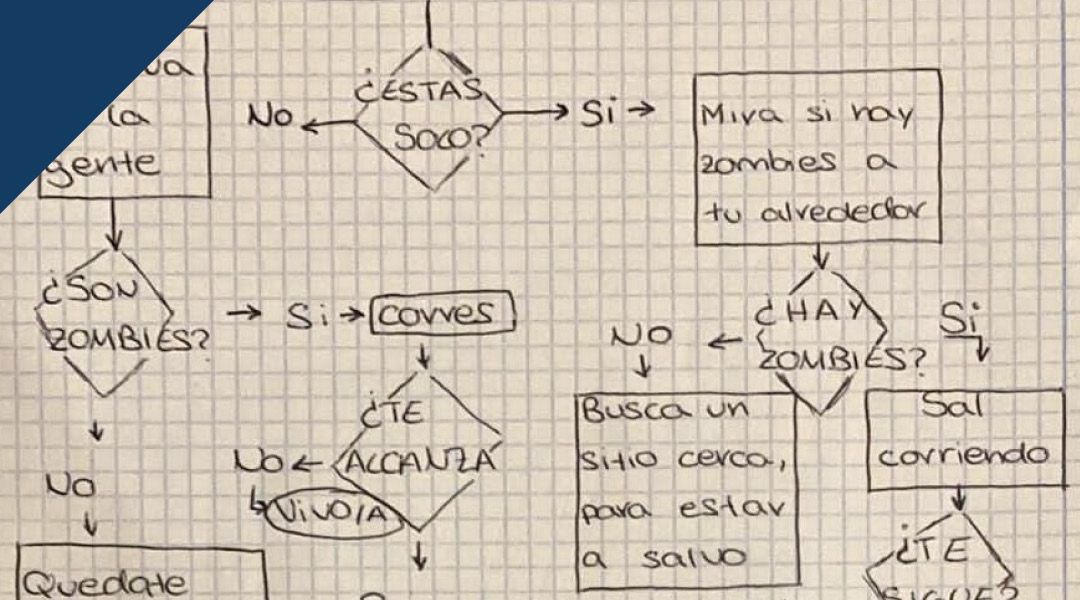 la
gente
¿ESTAS
SOLO?
No
Si
Mira si hay
zombies a
tu alrededor
¿SON
ZOMBIES?
Si
corres
No
Quedate
¿TE
ALCANZA
No
VIVO/A
¿HAY
ZOMBIES?
NO
Busca un
sitio cerca,
para estar
a salvo
Si
Sal
corriendo
¿TE
SIGUE?